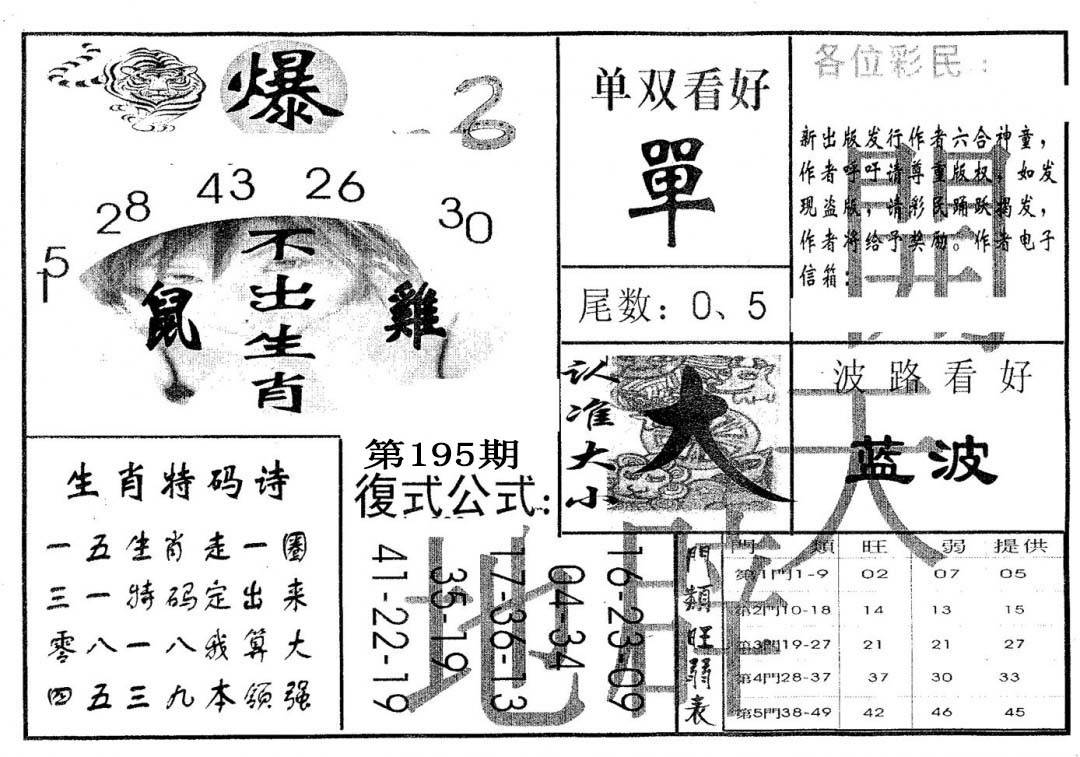 爆
26
5 28 43 26 30
不出生肖
鼠 雞
单双看好
單
尾数：0、5
各位彩民：
新出版发行作者六合神童，
作者呼吁请尊重版权，如发
现盗版，请彩民踊跃揭发，
作者将给予奖励。作者电子
信箱：
认准大小
大
波路看好
蓝波
生肖特码诗
一五生肖走一圈
三一特码定出来
零八一八我算大
四五三九本领强
第195期
復式公式：
16-23-09
04-34
17-36-13
35-19
41-22-19
門類旺弱表
門類 旺 弱 提供
第1門1-9 02 07 05
第2門10-18 14 13 15
第3門19-27 21 21 27
第4門28-37 37 30 33
第5門38-49 42 46 45